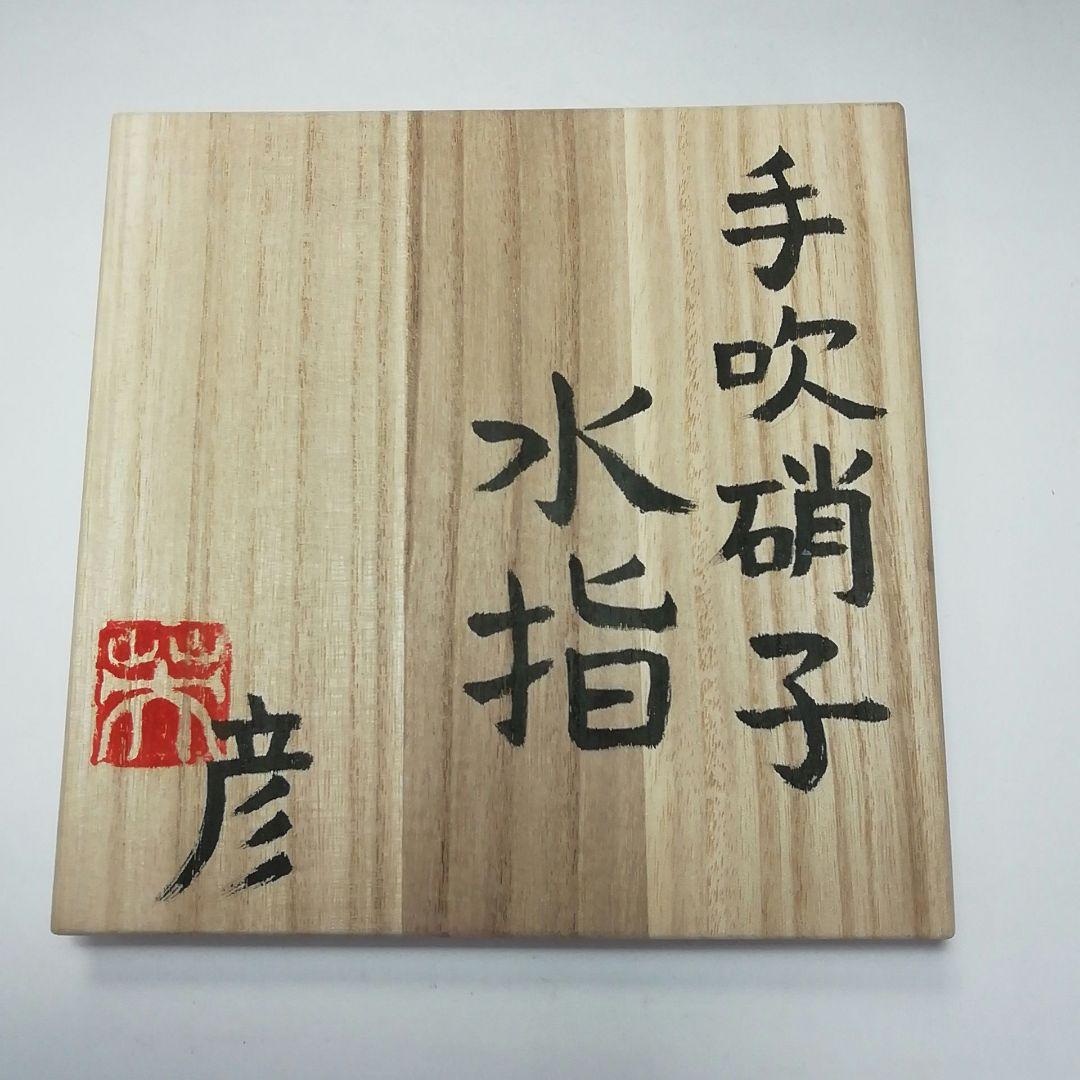 手吹硝子
水指
彦